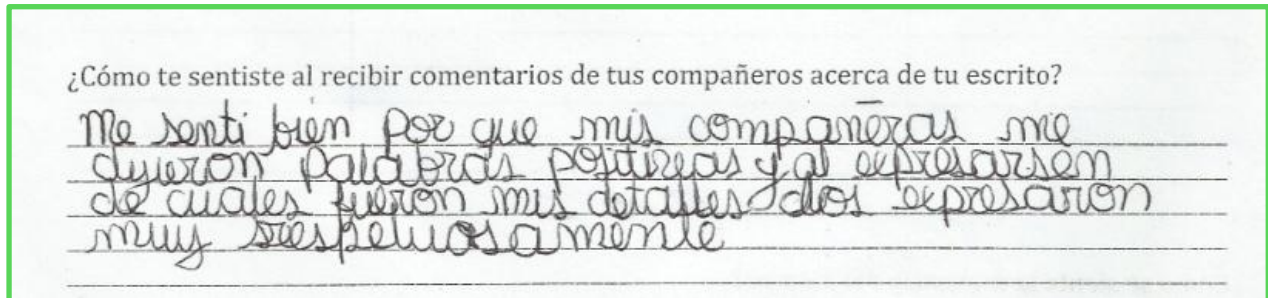 ¿Cómo te sentiste al recibir comentarios de tus compañeros acerca de tu escrito?
Me senti bien por que mis compañeras me
dijeron palabras positivas y al expresarsen
de cuales fueron mis detalles los expresaron
muy respetuosamente